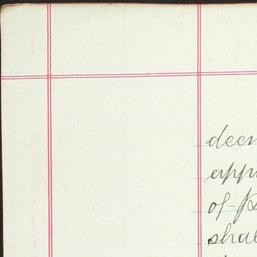 deem
appr
of P
shal